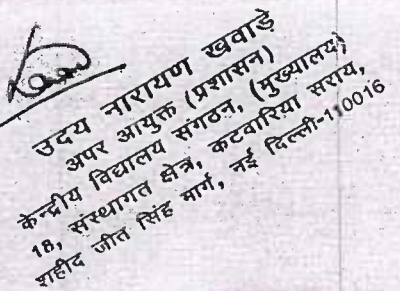 उदय नारायण खवाड़े
अपर आयुक्त (प्रशासन)
केन्द्रीय विद्यालय संगठन, (मुख्यालय)
18, संस्थागत क्षेत्र, कटवारिया सराय,
शहीद जीत सिंह मार्ग, नई दिल्ली-110016